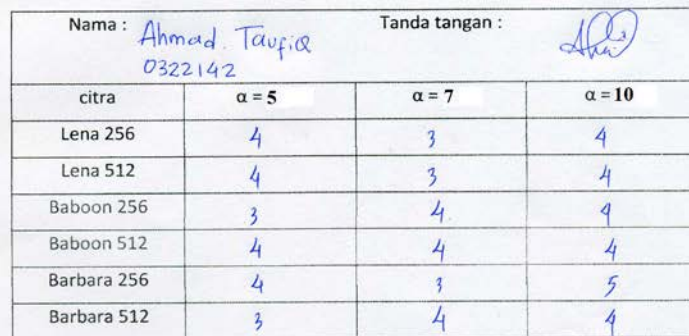 Nama : Ahmad. Taufiq Tanda tangan :
0322142
citra α = 5 α = 7 α = 10
Lena 256 4 3 4
Lena 512 4 3 4
Baboon 256 3 4 4
Baboon 512 4 4 4
Barbara 256 4 3 5
Barbara 512 3 4 4